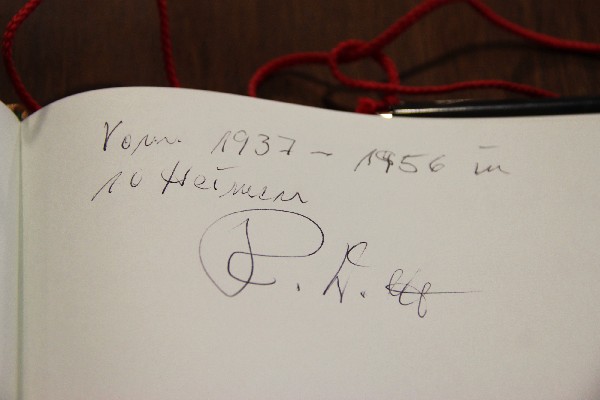 Vom 1937 - 1956 in
10 Heimen